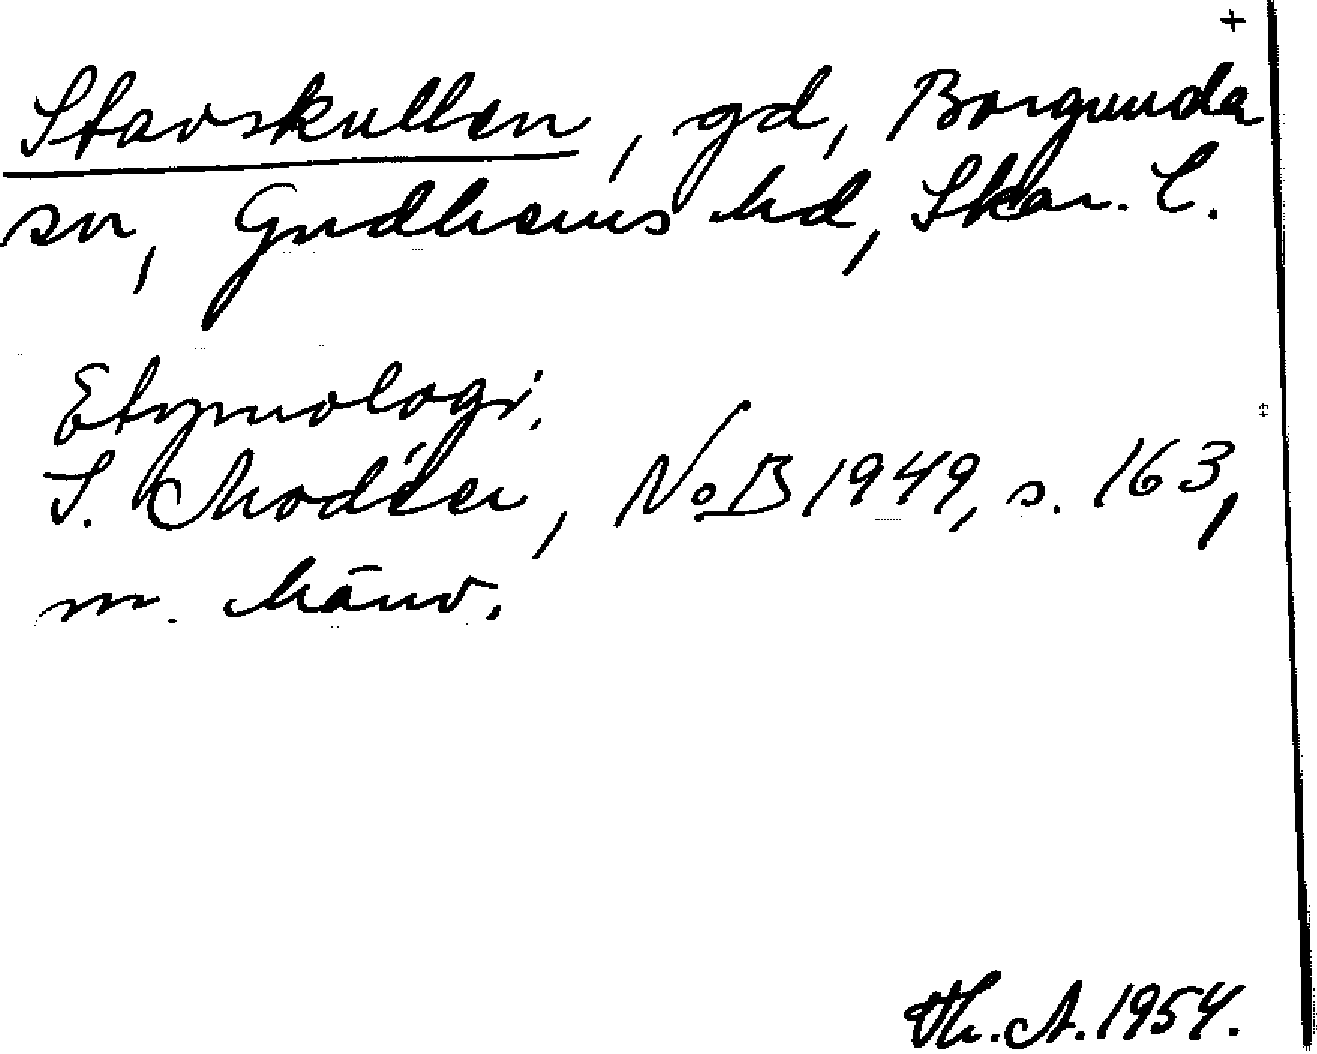 +
Stavskullen, gd, Borgunda
sn, Gudhems hd, Skar. l.
Etymologi.
I. Modéer, NoB 1949, s. 163,
m. hänv.
Th. A. 1954.